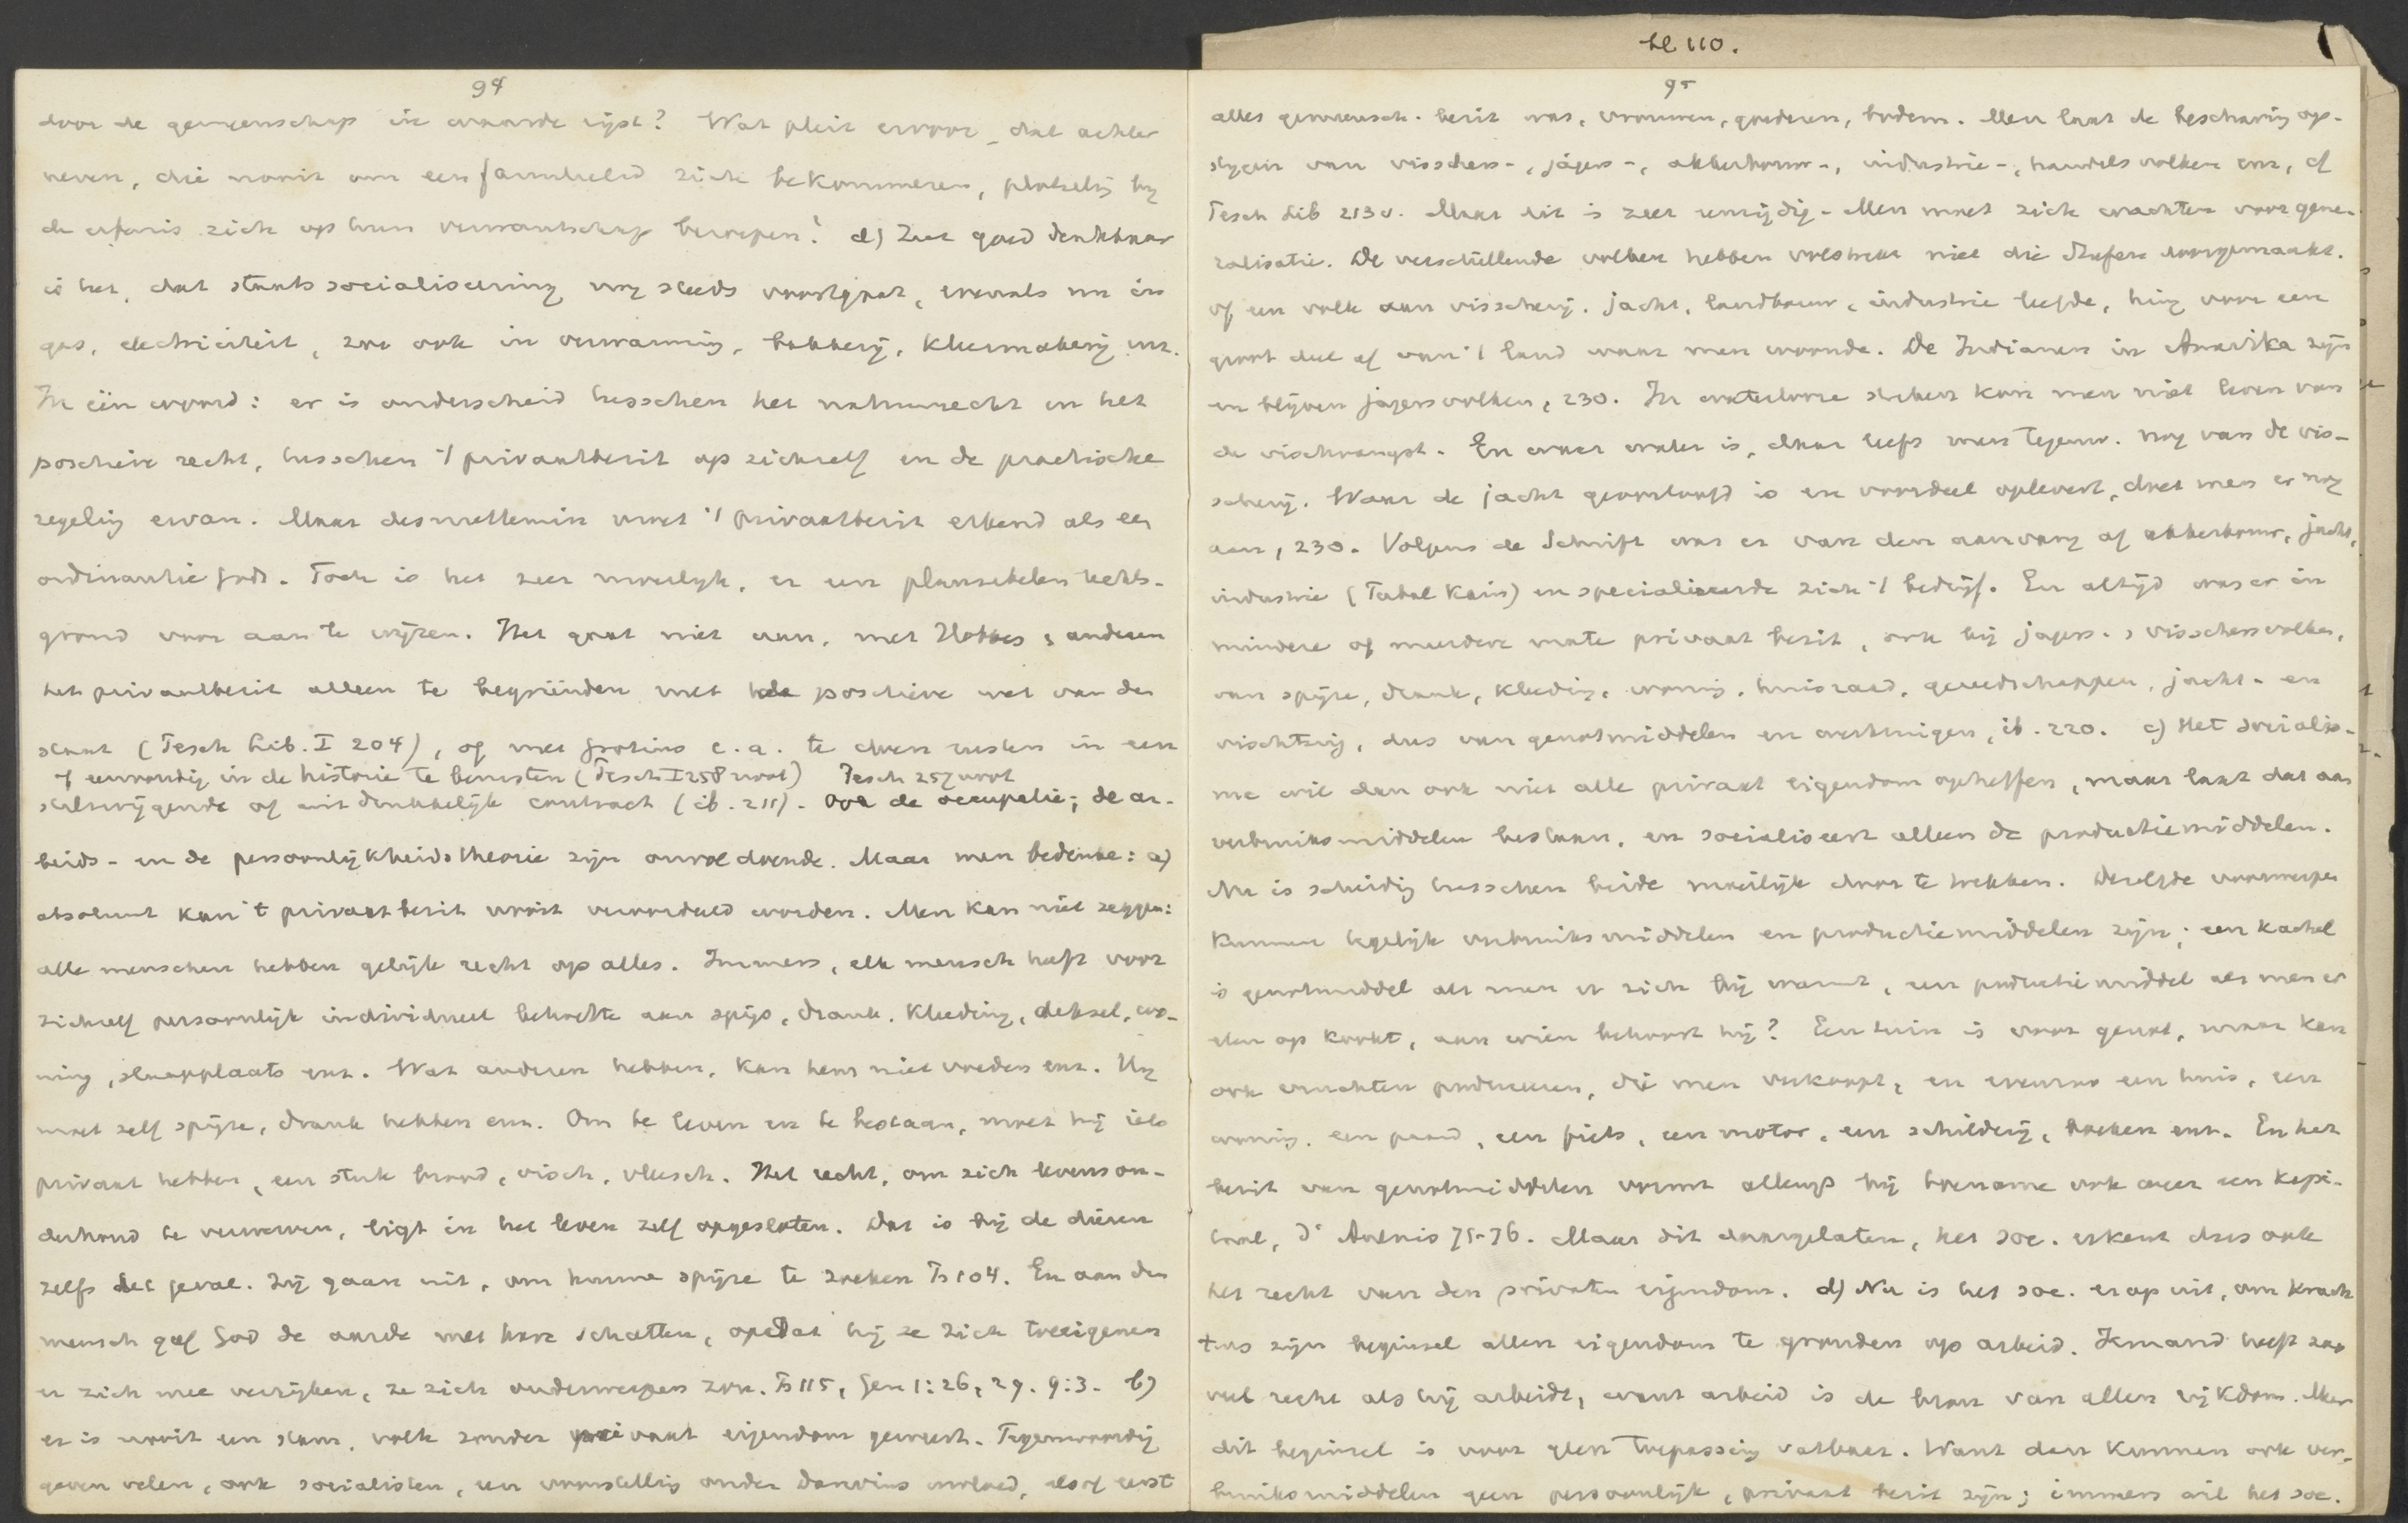 94
door de gemeenschap in waarde rijst? Wat pleit ervoor, dat achter-
neven, die nooit om een familielid zich bekommeren, plotseling bij
de erfenis zich op hun verwantschap beroepen? d) Zeer goed denkbaar
is het, dat staatssocialiseering nog steeds voortgaat, evenals nu in
gas, electriciteit, zoo ook in verwarming, bakkerij, kleermakerij enz.
In één woord: er is onderscheid tusschen het natuurrecht en het
positieve recht, tusschen 't privaatbezit op zichzelf en de practische
regeling ervan. Maar desniettemin moet 't privaatbezit erkend als een
ordinantie Gods. Toch is het zeer moeilijk, er een plausibelen rechts-
grond voor aan te wijzen. Het gaat niet aan, met Hobbes & anderen
het privaatbezit alleen te begründen met de positieve wet van den
staat (Pesch Lib. I 204), of met Grotius e.a. te doen rusten in een
of eenvoudig in de historie te berusten (Pesch I 258 noot) Pesch 257 noot
stilzwijgende of uitdrukkelijk contract (ib. 211). Ook de occupatie; de ar-
beids- en de persoonlijkheidstheorie zijn onvoldoende. Maar men bedenke: a)
absoluut kan 't privaatbezit nooit veroordeeld worden. Men kan niet zeggen:
alle menschen hebben gelijk recht op alles. Immers, elk mensch heeft voor
zichzelf persoonlijk individueel behoefte aan spijs, drank, kleeding, deksel, wo-
ning, slaapplaats enz. Wat anderen hebben, kan hem niet voeden enz. Hij
moet zelf spijze, drank hebben enz. Om te leven en te bestaan, moet hij iets
privaat hebben, een stuk brood, visch, vleesch. Het recht, om zich levenson-
derhoud te verwerven, ligt in het leven zelf opgesloten. Dat is bij de dieren
zelfs het geval. Zij gaan uit, om hunne spijze te zoeken Ps 104. En aan den
mensch gaf God de aarde met hare schatten, opdat hij ze zich toeeigenen
en zich mee verrijken, ze zich onderwerpen zou. Ps 115, Gen 1:26, 29. 9:3. b)
er is nooit een stam, volk zonder privaat eigendom geweest. Tegenwoordig
geven velen, ook socialisten, een voorstelling onder Darwins invloed, alsof eerst
bl 110.
95
alles gemeensch. bezit was, vrouwen, goederen, bodem. Men laat de beschaving op-
stijgen van visschers-, jagers-, akkerbouw-, industrie-, handelsvolken enz, cf
Pesch Lib 213 v. Maar dit is zeer eenzijdig. Men moet zich wachten voor gene-
ralisatie. De verschillende volken hebben volstrekt niet die stufen doorgemaakt.
of een volk van visscherij, jacht, landbouw, industrie leefde, hing voor een
groot deel af van 't land waar men woonde. De Indianen in Amerika zijn
en blijven jagersvolken, 230. In waterlooze streken kan men niet leven van
de vischvangst. En waar water is, daar leeft men tegenw. nog van de vis-
scherij. Waar de jacht geoorloofd is en voordeel oplevert, doet men er nog
aan, 230. Volgens de Schrift was er van den aanvang af akkerbouw, jacht,
industrie (Tubal Kain) en specialiseerde zich 't bedrijf. En altijd was er in
mindere of meerdere mate privaat bezit, ook bij jagers- & visschersvolken,
van spijze, drank, kleeding, woning, huisraad, gereedschappen, jacht- en
vischtuig, dus van genotmiddelen en werktuigen, ib. 220. c) Het socialis-
me wil dan ook niet alle privaat eigendom opheffen, maar laat dat aan
verbruiksmiddelen bestaan, en socialiseert alleen de productiemiddelen.
Nu is scheiding tusschen beide moeilijk door te trekken. Dezelfde voorwerpen
kunnen tegelijk verbruiksmiddelen en productiemiddelen zijn; een kachel
is genotmiddel als men er zich bij warmt, een productiemiddel als men er
eten op kookt, aan wien behoort hij? Een tuin is voor genot, maar kan
ook vruchten produceeren, die men verkoopt, en evenzoo een huis, een
woning, een paard, een fiets, een motor, een schilderij, boeken enz. En het
bezit van genotmiddelen vormt allengs bij toename ook weer een kapi-
taal, d'Aulnis 75-76. Maar dit daargelaten, het soc. erkent dus ook
het recht van den privaten eigendom. d) Nu is het soc. erop uit, om krach-
tens zijn beginsel allen eigendom te gronden op arbeid. Iemand heeft zoo
veel recht als hij arbeidt, want arbeid is de bron van allen rijkdom. Maar
dit beginsel is voor geen toepassing vatbaar. Want dan kunnen ook ver-
bruiksmiddelen geen persoonlijk, privaat bezit zijn; immers wil het soc.